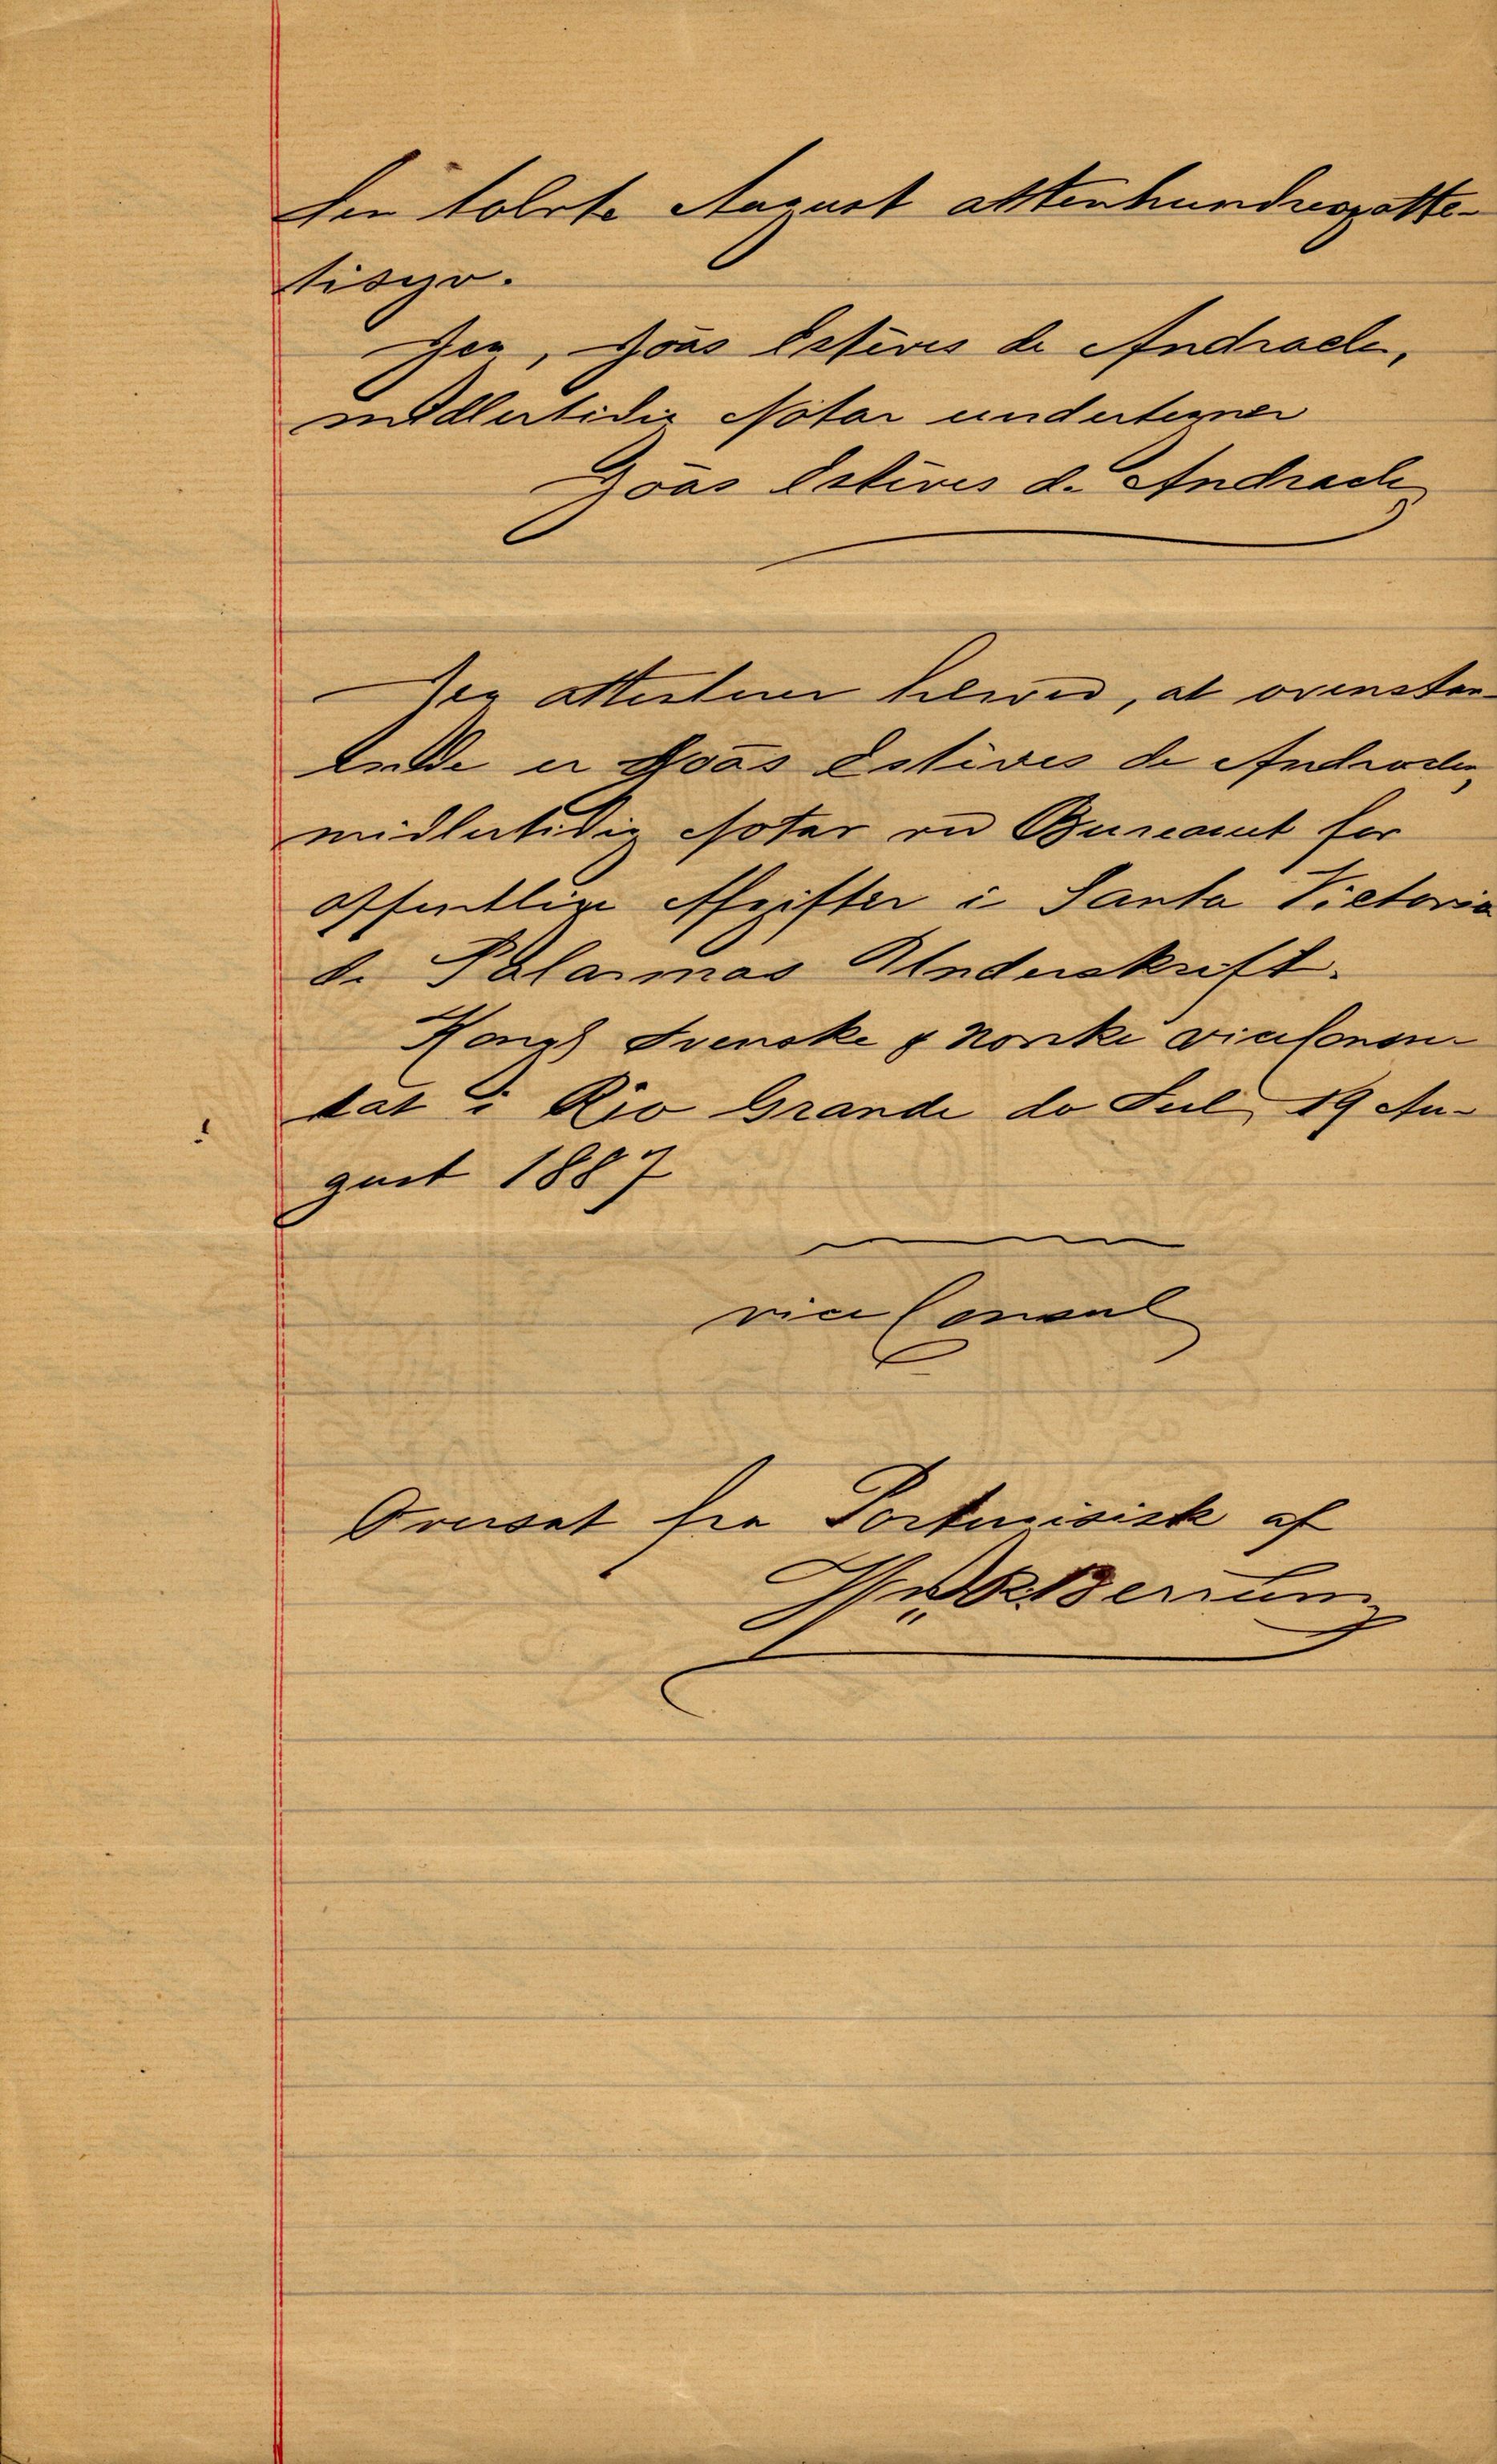 den tolvte August attenhundreogotte-
tisyv.
Jeg, Joãs Estêves de Andrade,
midlertidig Notar undertegner
Joãs Estêves de Andrade
Jeg attesterer herved, at ovenstaa-
ende er Joãs Estêves de Andrade,
midlertidig Notar ved Bureauet for
offentlige Afgifter i Santa Victoria
de Palarmas Underskrift.
Kongl Svenske & Norske viceConsu-
lat i Rio Grande do Sul, 19 Au-
gust 1887
vice Consul
Oversat fra Portugisisk af